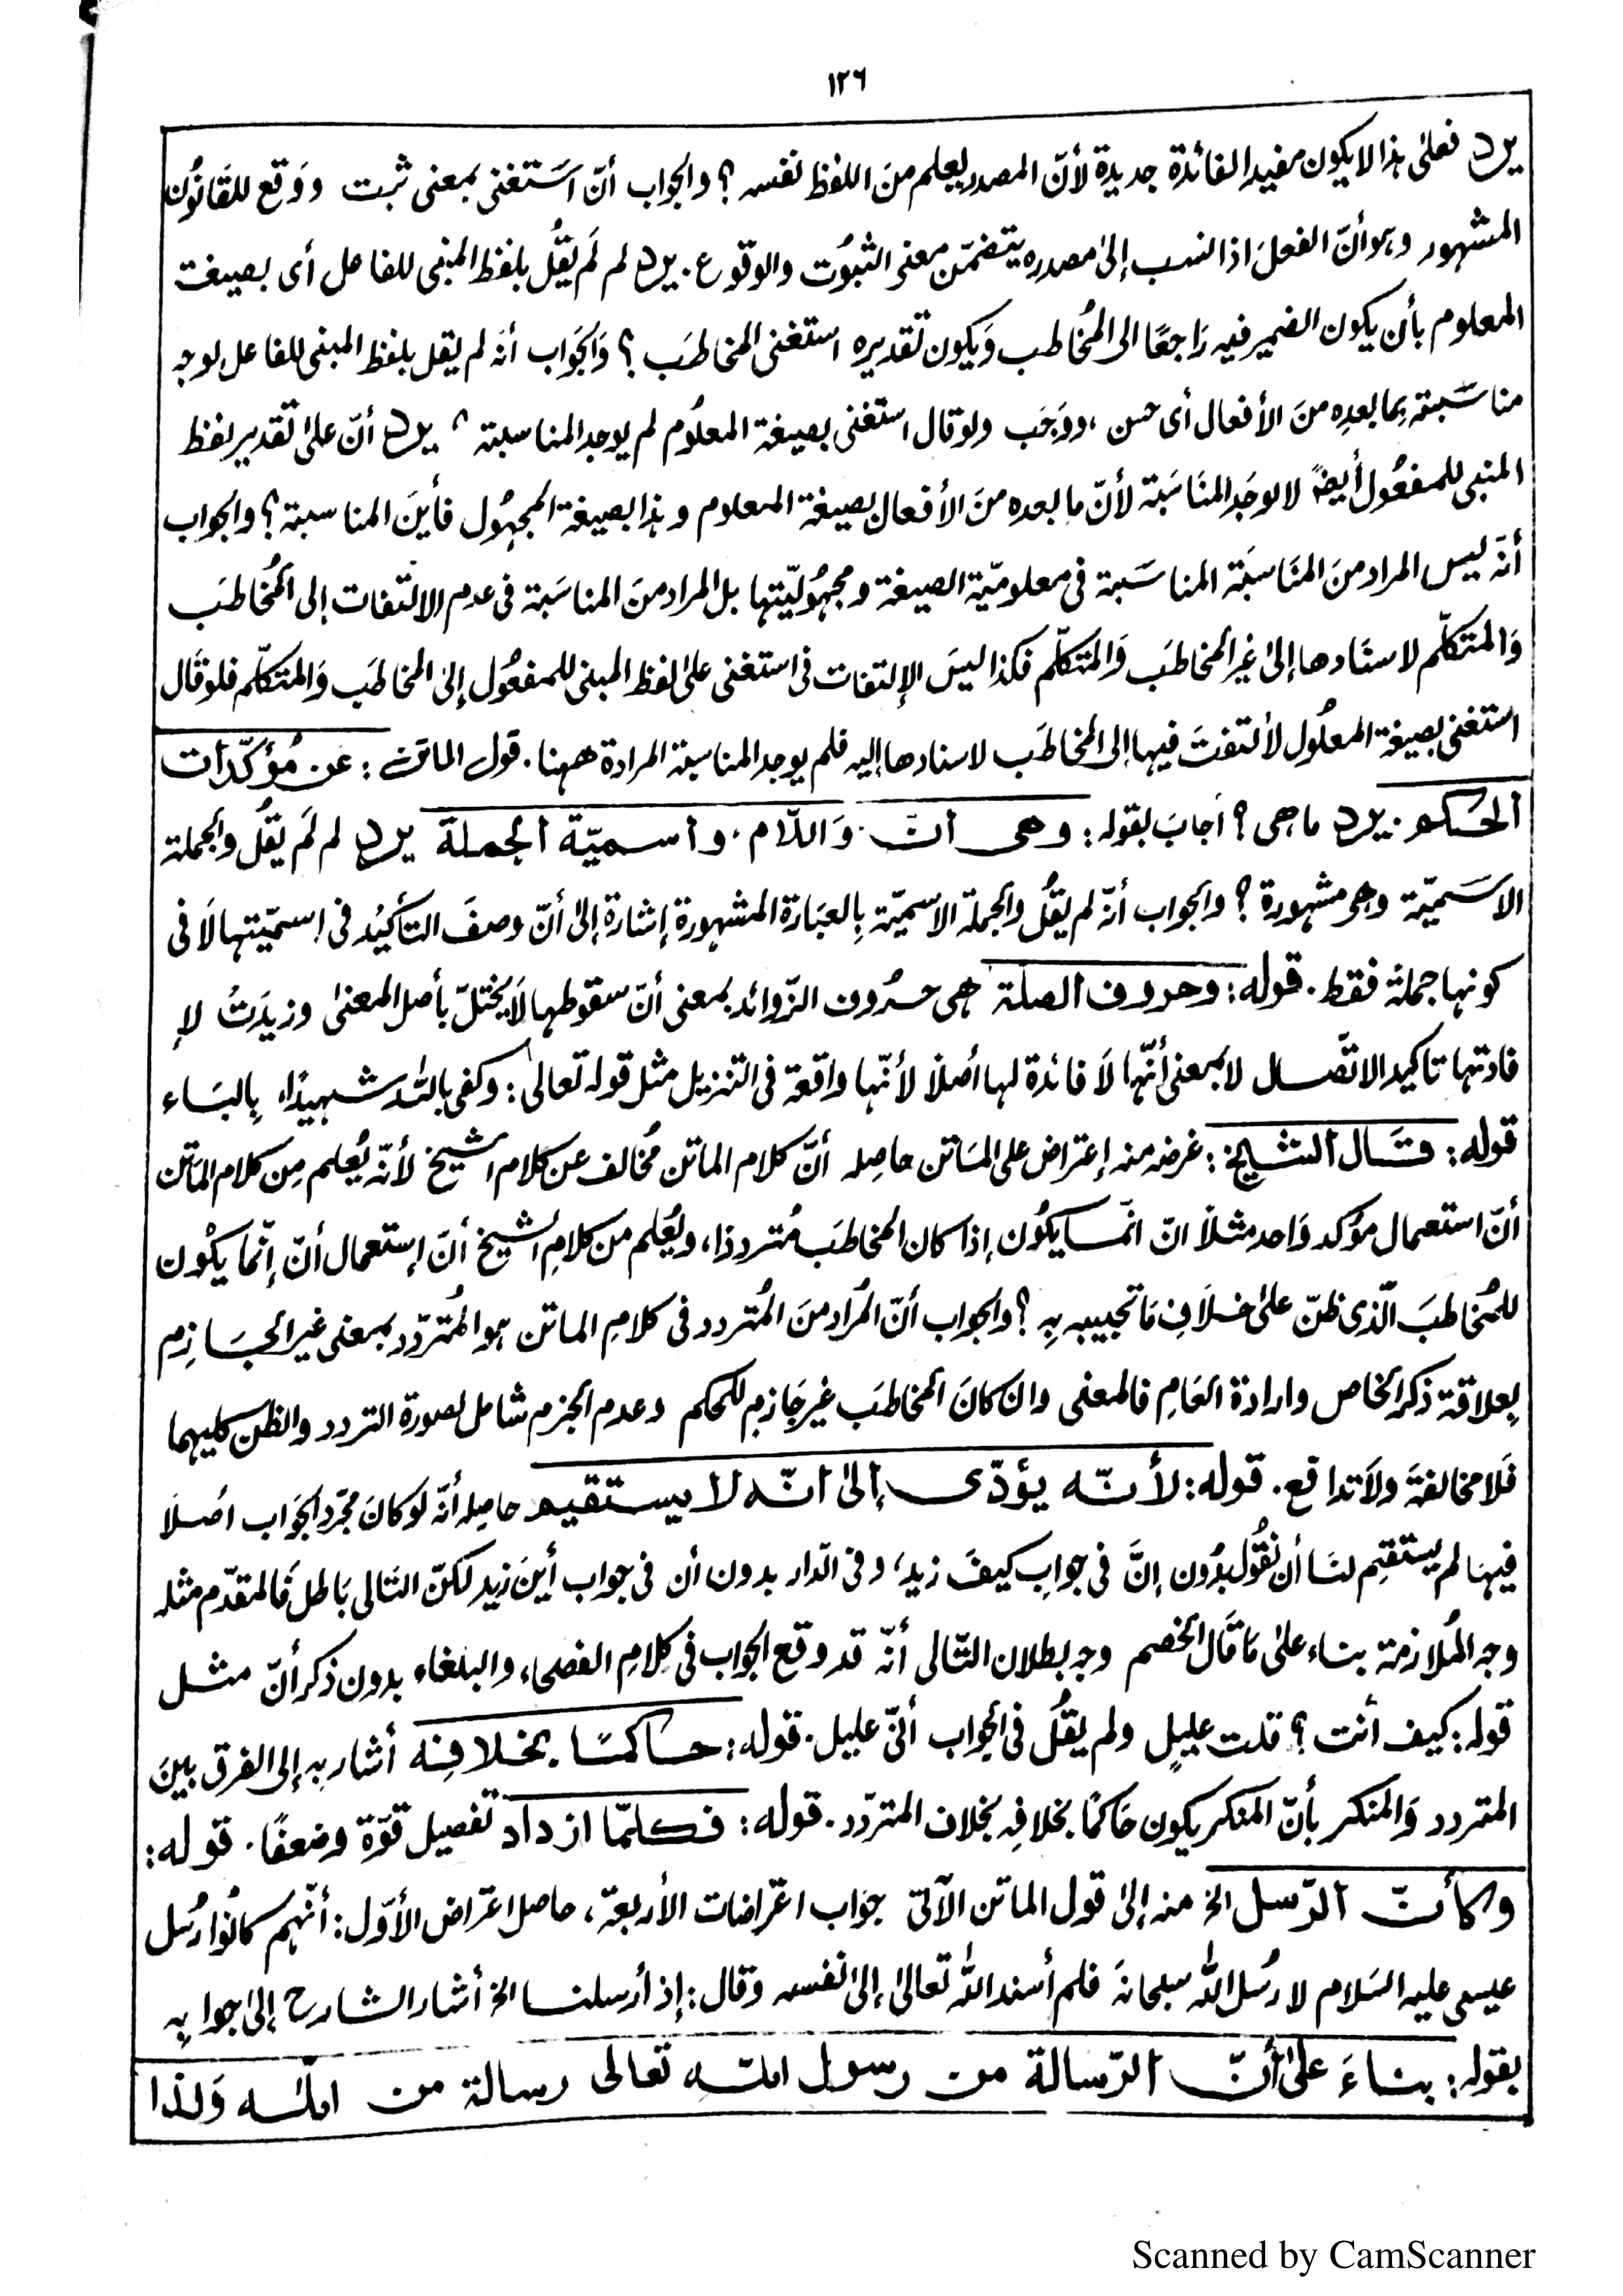 ١٢٦
يرد فعلىٰ هذا لا يكون مفيدا لفائدة جديدة لأنّ المصدر يعلم منَ اللفظ نفسه ؟ والجواب أنّ اَستغنى بمعنى ثبت ووَقع للقَانُون
المشهور وهو أنّ الفعلَ اذا انسب إلىٰ مصدره يتضمّن معنى الثبُوت والوقوع. يرد لم لَم يقُل بلفظ المبنى للفاعل أى بصيغت
المعلوم بأن يكون الضمير فيه رَاجعًا الى المُخاطب وَيكون تقديره استغنى المخاطَب ؟ وَالجَواب أنه لم يقل بلفظ المبنى للفاعل لوجه
مناسَبته بِما بعدِه منَ الأفعال أى حسن ، ووَجَب ولو قال استغنى بصيغة المعلُوم لم يوجد المناسبة ، يرد أنّ علىٰ تقدير لفظ
المبنى للمفعُول أيضًا لا يوجَد المنَاسَبة لأنّ ما بعده منَ الأفعال بصيغة المعلوم وهذا بصيغة المجهُول فأينَ المناسبة ؟ والجواب
أنّه ليس المراد منَ المنَاسبَة المناسَبة فى معلوميّة الصيغة ومجهُوليّتها بل المراد منَ المناسَبة فى عدم الالتفات إلى المُخاطَب
وَالمتكلّم لاسنَادها إلىٰ غير المخاطَب وَالمتَكلّم فكذا ليسَ الإلتفات فى استغنى علىٰ لفظ المبنى للمفعُول إلىٰ المخاطَب وَالمتكلّم فلو قَال
استغنى بصيغة المعلُول لألتفتَ فيها إلى المخاطَب لاسنادها إليه فلم يوجد المناسبة المرادة ههنا. قول الماتن : عن مُؤكّدات
الحَكم. يرد ما هى ؟ أجابَ بقوله : وهى أنّ وَاللّام ، وأسميّة الجملة يرد لم لَم يقُل والجملة
الاسَميّة وهى مشهورة ؟ والجواب أنّه لم يقُل والجملة الاسميّة بِالعبَارة المشهورة إشارة إلىٰ أنّ وصفَ التأكيد فى إسميّتها لَا فى
كونها جملة فقط. قوله : وحروف الصلة هى حرُوف الزّوائد بمعنى أنّ سقوطها لَا يختلّ بأصل المعنىٰ وزيدَتْ لإ
فادتها تاكيد الاتّصال لا بمعنى أنّها لَا فائدة لها أصلاً لأنّها واقعة فى التنزيل مثل قوله تعالىٰ : وكفى بالله شهيدًا ، بِالبَاء
قوله : قَال الشيخ : غرضه منه إعتراض على المَاتن حاصِله أنّ كلام الماتن مُخالف عن كلام الشيخ لأنّه يُعلم مِن كلام المَاتن
أنّ استعمال مؤكد وَاحد مثلاً انّ انّمَا يكُون إذا كان المخاطَب مُترددًا ، ويعُلم من كلامِ الشيخ أنّ إستعمال أنّ إنّما يكُون
للمُخاطبَ الّذى ظنّ علىٰ خلَافِ مَا تجيبه بِهِ ؟ والجواب أنّ المُراد منَ المُتردد فى كلامِ الماتن هو المُتردّد بمعنى غير الجَازِم
بِعلاقة ذكر الخاص وارادة العَامِ فالمعنى وان كانَ المخاطَب غير جَازم للحكم وعدم الجزم شامل لصورة التردد والظن كليهما
فَلا مخالفةَ ولَا تدافع. قوله : لأنّه يؤدّى إلىٰ انّه لا يستقيم حاصِله أنّه لو كانَ مجّرد الجَواب اصلًا
فيها لم يستقِم لنَا أن نقُول بدُون إنّ فى جوابِ كيفَ زيد ، وفى الدّار بدون أن فى جواب أينَ زيد لكنّ التّالى بَاطل فَالمقدّم مثله
وجه المُلازمة بناء علىٰ مَا قَال الخصم وجه بطلان التّالى أنّه قد وقع الجواب فى كلامِ الفصحاء والبلغاء بدون ذكر أنّ مثل
قوله : كيف أنت ؟ قلت عليلٍ ولم يقُل فى الجواب أنّى عليل. قوله : حاكمًا بخلافِه أشار به إلى الفرق بينَ
المتردد وَالمنكر بأنّ المنكر يكون حَاكمًا بخلافِه بخلاف المتردّد. قوله : فكلمّا ازداد تفصيل قوّة وضعفًا. قوله :
وكأنّ الرّسل الخ منه إلىٰ قول الماتن الآتى جوَاب اعتراضات الأربعة ، حاصل اعتراض الأوّل : أنّهم كانُوا رُسل
عيسى عليه السَلام لا رسُل الله سبحانهَ فلم أسند الله تعالىٰ إلىٰ نفسه وقال : إذ أرسلنا الخ أشار الشارح إلىٰ جوابِه
بقوله : بناءَ علىٰ أنّ الرّسالة من رسول الله تعالى رسالة من الله وَلذا
Scanned by CamScanner